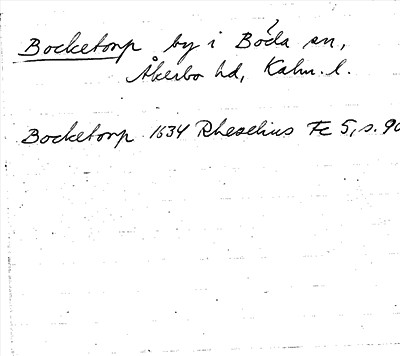 Bocketorp by i Böda sn,
Åkerbo hd, Kalm. l.
Bocketorp 1634 Rhezelius Fc 5, s. 90